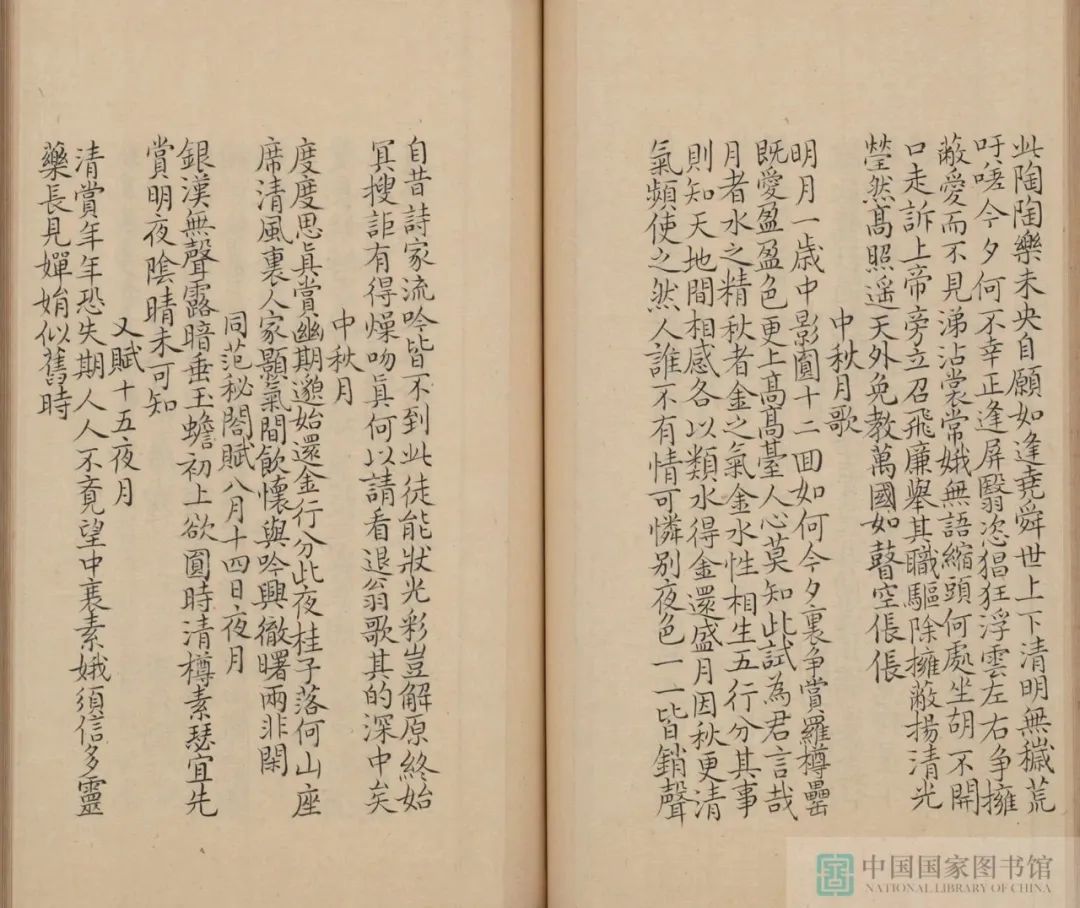 此陶陶樂未央自願如逢堯舜世上下清明無穢荒
吁嗟今夕何不幸正逢屏翳恣猖狂浮雲左右争擁
蔽愛而不見涕沾裳常娥無語縮頭何處坐胡不開
口走訴上帝旁立召飛廉舉其職驅除擁蔽揚清光
瑩然髙照遥天外免教萬國如瞽空倀倀
中秋月歌
明月一歳中影圓十二囬如何今夕裏争賞羅樽罍
既愛盈盈色更上髙髙臺人心莫知此試為君言哉
月者水之精秋者金之氣金水性相生五行分其事
則知天地間相感各以類水得金還盛月因秋更清
氣頻使之然人誰不有情可憐别夜色一一皆銷聲
自昔詩家流吟皆不到此徒能狀光彩豈解原終始
冥搜詎有得燥吻眞何以請看退翁歌其的深中矣
中秋月
度度思眞賞幽期邈始還金行分此夜桂子落何山座
席清風裏人家顥氣間飲懷與吟興徹曙兩非閑
同范秘閣賦八月十四日夜月
銀漢無聲露暗垂玉蟾初上欲圓時清樽素瑟宜先
賞明夜陰晴未可知
又賦十五夜月
清賞年年恐失期人人不竟望中衰素娥須信多靈
藥長見嬋娟似舊時
中国国家图书馆
NATIONAL LIBRARY OF CHINA